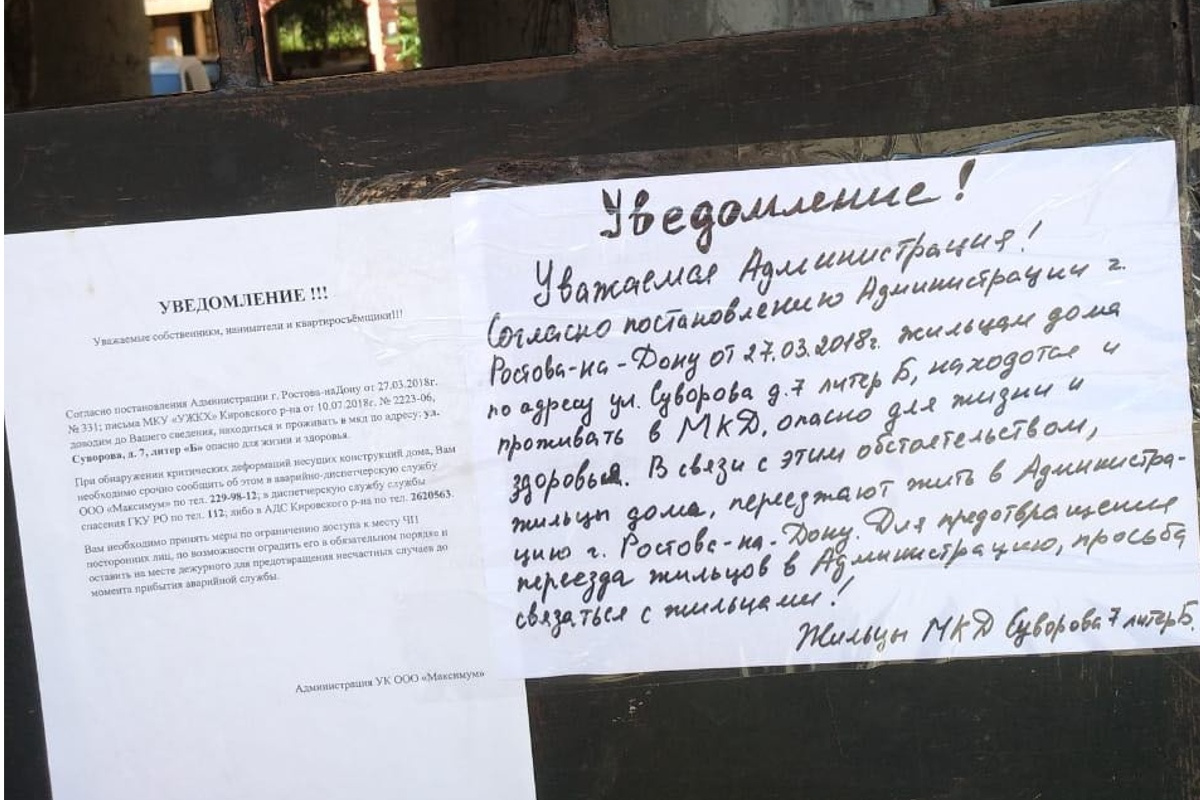 УВЕДОМЛЕНИЕ !!!
Уважаемые собственники, наниматели и квартиросъёмщики!!!
Согласно постановления Администрации г. Ростова-наДону от 27.03.2018г.
№ 331; письма МКУ «УЖКХ» Кировского р-на от 10.07.2018г. № 2223-06,
доводим до Вашего сведения, находиться и проживать в мкд по адресу: ул.
Суворова, д. 7, литер «Б» опасно для жизни и здоровья.
При обнаружении критических деформаций несущих конструкций дома, Вам
необходимо срочно сообщить об этом в аварийно-диспетчерскую службу
ООО «Максимум» по тел. 229-98-12; в диспетчерскую службу службы
спасения ГКУ РО по тел. 112; либо в АДС Кировского р-на по тел. 2620563.
Вам необходимо принять меры по ограничению доступа к месту ЧП
посторонних лиц, по возможности оградить его в обязательном порядке и
оставить на месте дежурного для предотвращения несчастных случаев до
момента прибытия аварийной службы.
Администрация УК ООО «Максимум»
Уведомление!
Уважаемая Администрация!
Согласно постановлению Администрации г.
Ростова-на-Дону от 27.03.2018г. жильцам дома
по адресу ул. Суворова д.7 литер Б, находотся и
проживать в МКД, опасно для жизни и
здоровья. В связи с этим обстоятельством,
жильцы дома, переезжают жить в Администра-
цию г. Ростова-на-Дону. Для предотвращение
переезда жильцов в Администрацию, просьба
связаться с жильцами!
Жильцы МКД Суворова 7 литер Б.